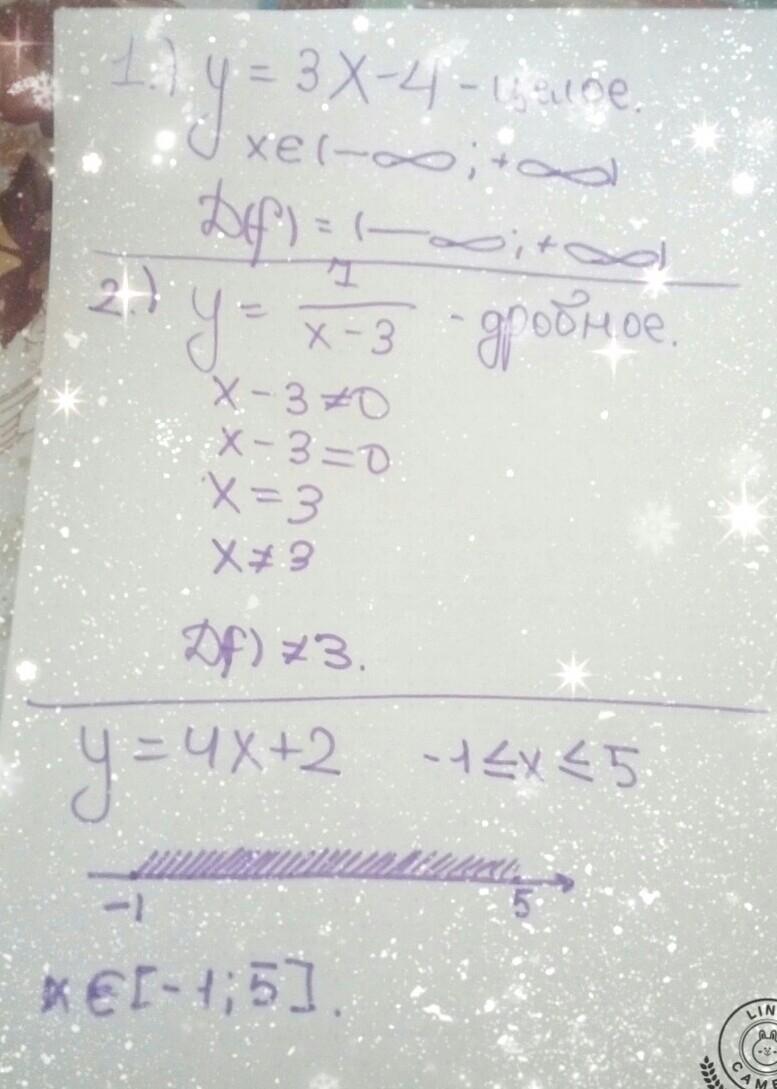 1.) y = 3x-4 - целое.
x∈(-∞; +∞)
D(f) = (-∞; +∞)
2.) y = 1/(x-3) - дробное.
x-3≠0
x-3=0
x=3
x≠3
D(f) ≠3.
y=4x+2 -1≤x≤5
-1 5
x∈[-1;5].
LIN
CAM